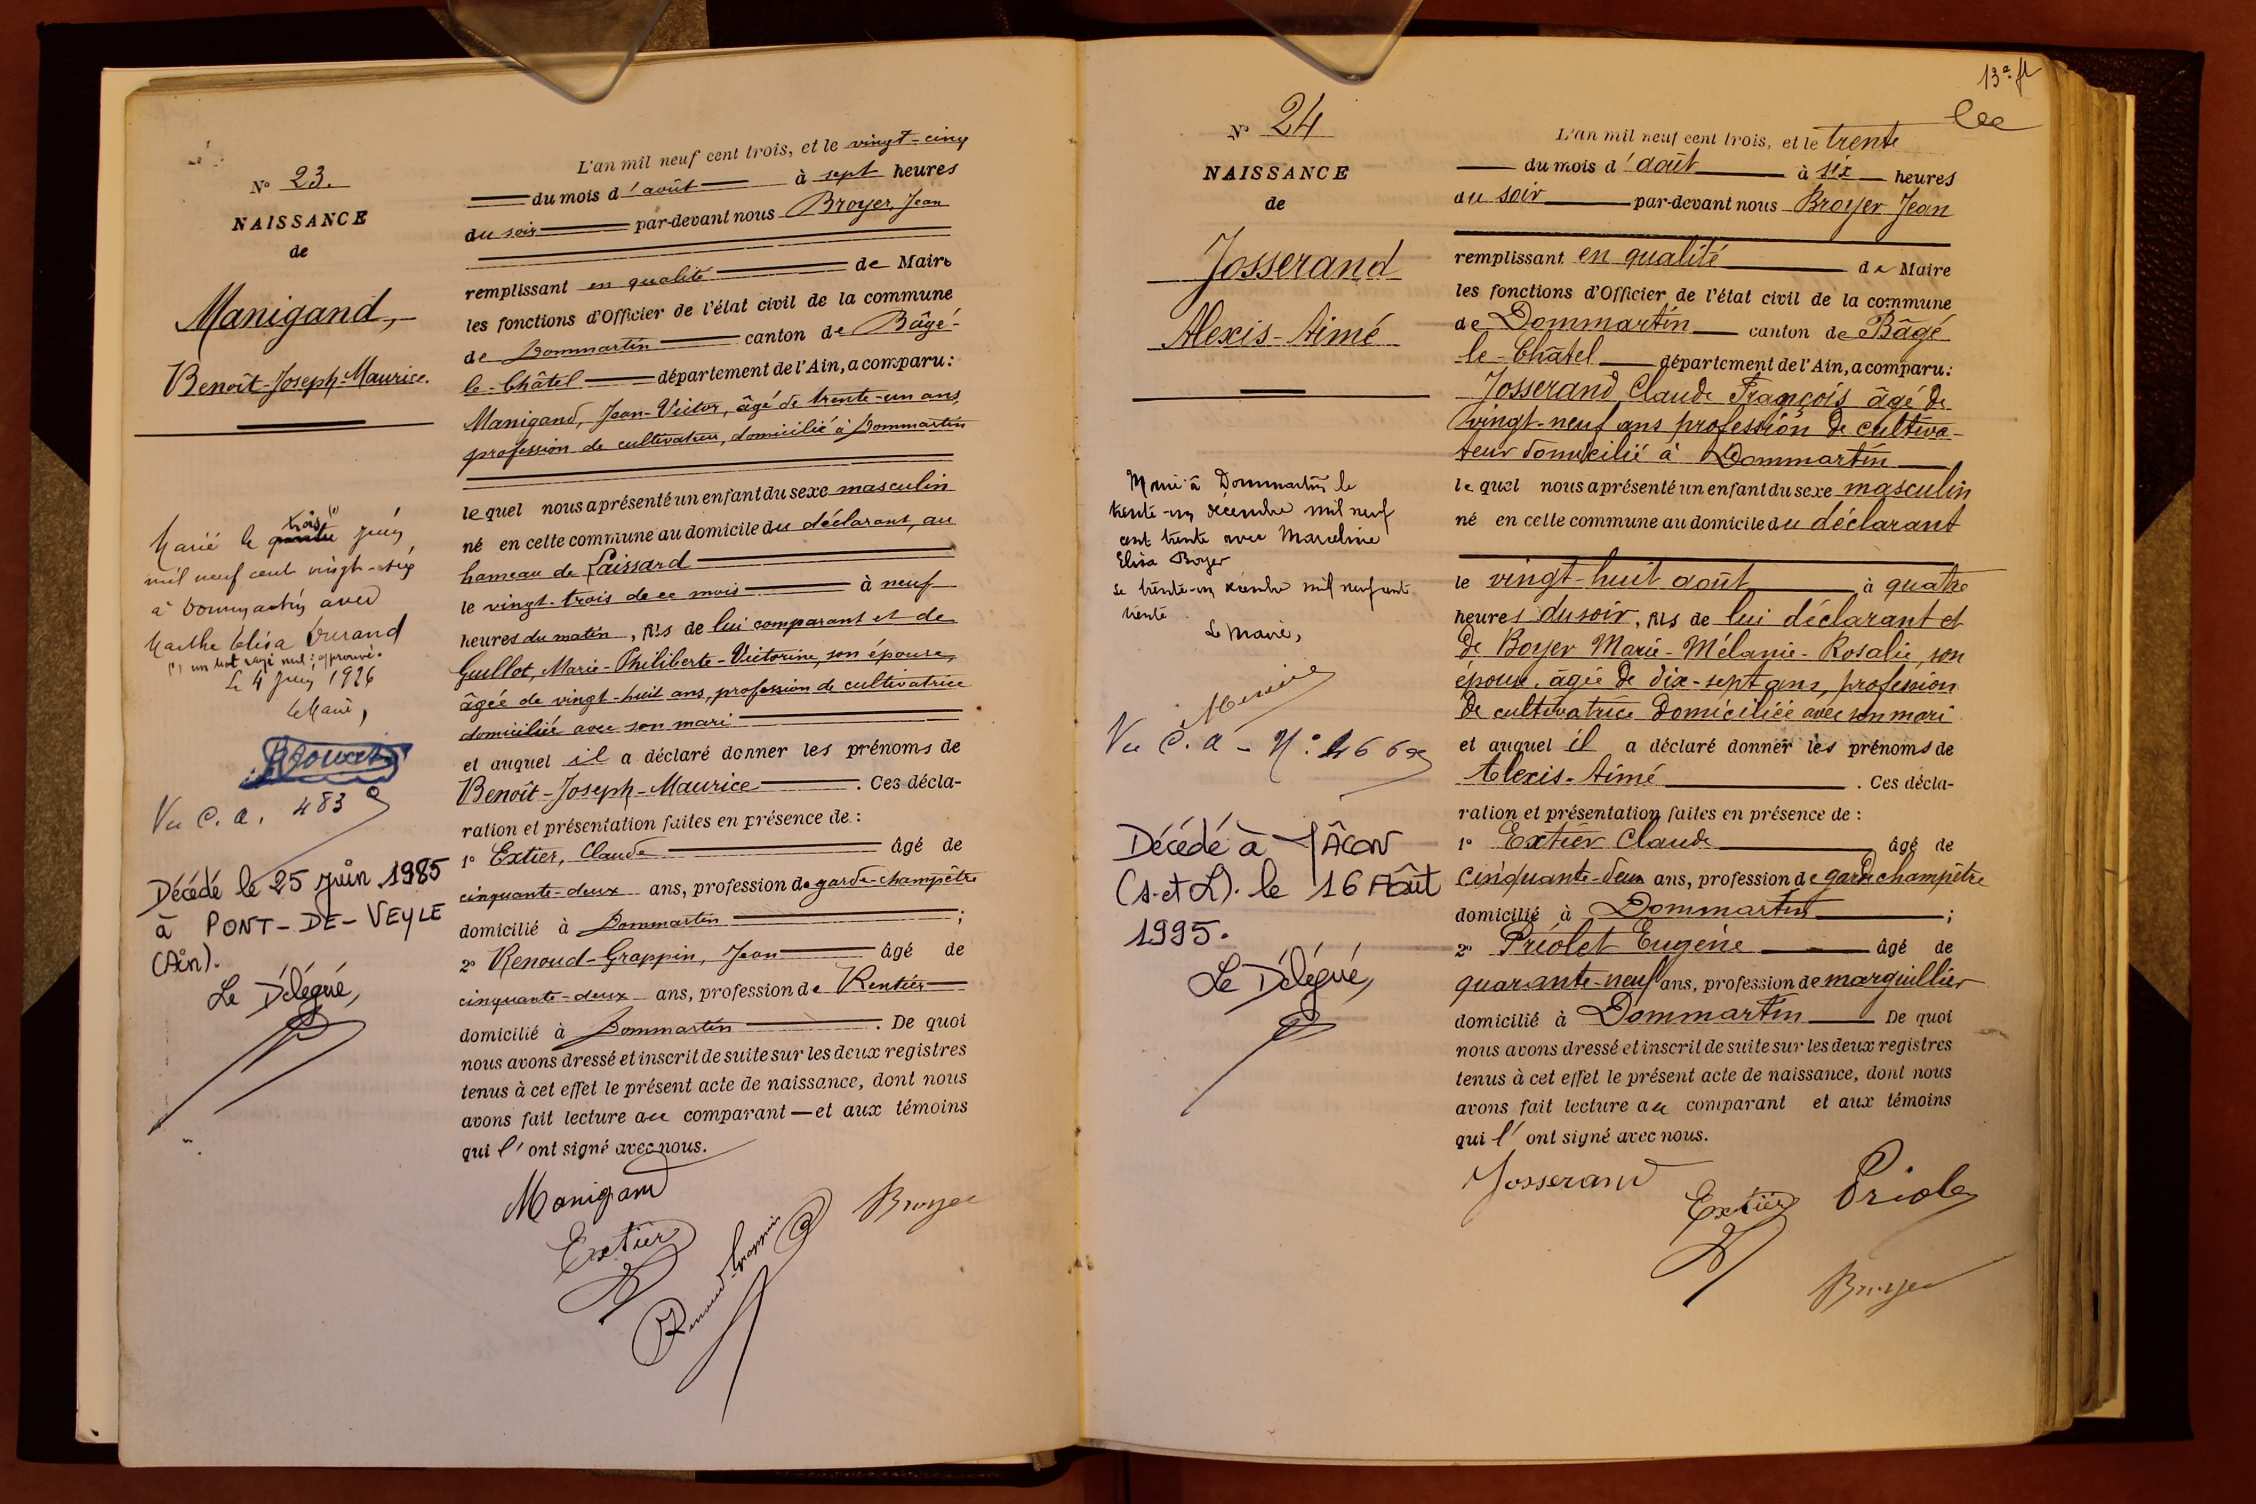 N° 23.
NAISSANCE
de
Manigand,
Benoît-Joseph-Maurice.
Marié le trois (1) juin
mil neuf cent vingt-six
à Dommartin avec
Marthe Elisa Durand
(1) un mot rayé nul; approuvé.
Le 4 juin 1926
Le Maire,
Vu C. a. 483
Décédé le 25 juin 1985
à PONT-DE-VEYLE
(Ain).
Le Délégué,
L'an mil neuf cent trois, et le vingt-cinq
du mois d'août à sept heures
du soir par-devant nous Broyer, Jean
remplissant en qualité de Maire
les fonctions d'Officier de l'état civil de la commune
de Dommartin canton de Bâgé-
le-Châtel département de l'Ain, a comparu:
Manigand, Jean-Victor, âgé de trente-un ans,
profession de cultivateur, domicilié à Dommartin
lequel nous a présenté un enfant du sexe masculin
né en cette commune au domicile du déclarant, au
hameau de Laissard
le vingt-trois de ce mois à neuf
heures du matin, fils de lui comparant et de
Guillot, Marie-Philiberte-Victorine, son épouse,
âgée de vingt-huit ans, profession de cultivatrice
domiciliée avec son mari
et auquel il a déclaré donner les prénoms de
Benoît-Joseph-Maurice. Ces décla-
ration et présentation faites en présence de:
1° Extier, Claude âgé de
cinquante-deux ans, profession de garde-champêtre
domicilié à Dommartin;
2° Renoud-Grappin, Jean âgé de
cinquante-deux ans, profession de Rentier
domicilié à Dommartin. De quoi
nous avons dressé et inscrit de suite sur les deux registres
tenus à cet effet le présent acte de naissance, dont nous
avons fait lecture au comparant—et aux témoins
qui l'ont signé avec nous.
Manigand
Extier
Renoud-Grappin
Broyer
13e. ft
N° 24
NAISSANCE
de
Josserand
Alexis-Aimé
Marié à Dommartin le
trente-un décembre mil neuf
cent trente avec Marceline
Elisa Boyer
Le trente-un décembre mil neuf cent
trente
Le Maire,
Vu C. a - N°
Décédé à MÂCON
(S.et L). le 16 Août
1995.
Le Délégué,
L'an mil neuf cent trois, et le trente
du mois d'août à six heures
du soir par-devant nous Broyer Jean
remplissant en qualité de Maire
les fonctions d'Officier de l'état civil de la commune
de Dommartin canton de Bâgé
le-Châtel département de l'Ain, a comparu:
Josserand Claude François âgé de
vingt-neuf ans profession de cultiva-
teur domicilié à Dommartin
lequel nous a présenté un enfant du sexe masculin
né en cette commune au domicile du déclarant
le vingt-huit août à quatre
heures du soir, fils de lui déclarant et
de Boyer Marie-Mélanie-Rosalie, son
épouse, âgée de dix-sept ans, profession
de cultivatrice domiciliée avec son mari
et auquel il a déclaré donner les prénoms de
Alexis-Aimé. Ces décla-
ration et présentation faites en présence de:
1° Extier Claude âgé de
cinquante-deux ans, profession de garde champêtre
domicilié à Dommartin;
2° Priolet Eugène âgé de
quarante-neuf ans, profession de marguillier
domicilié à Dommartin De quoi
nous avons dressé et inscrit de suite sur les deux registres
tenus à cet effet le présent acte de naissance, dont nous
avons fait lecture au comparant et aux témoins
qui l'ont signé avec nous.
Josserand
Extier
Priolet
Broyer